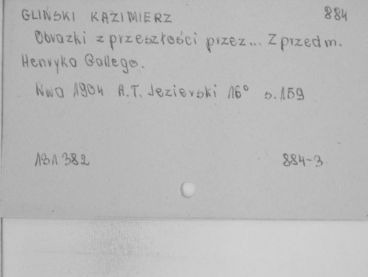 GLIŃSKI KAZIMIERZ 884
Obrazki z przeszłości przez... Z przedm.
Henryka Gallego.
Nwa 1904 A.T. Jezierski 16° s. 159
131.382 884-3